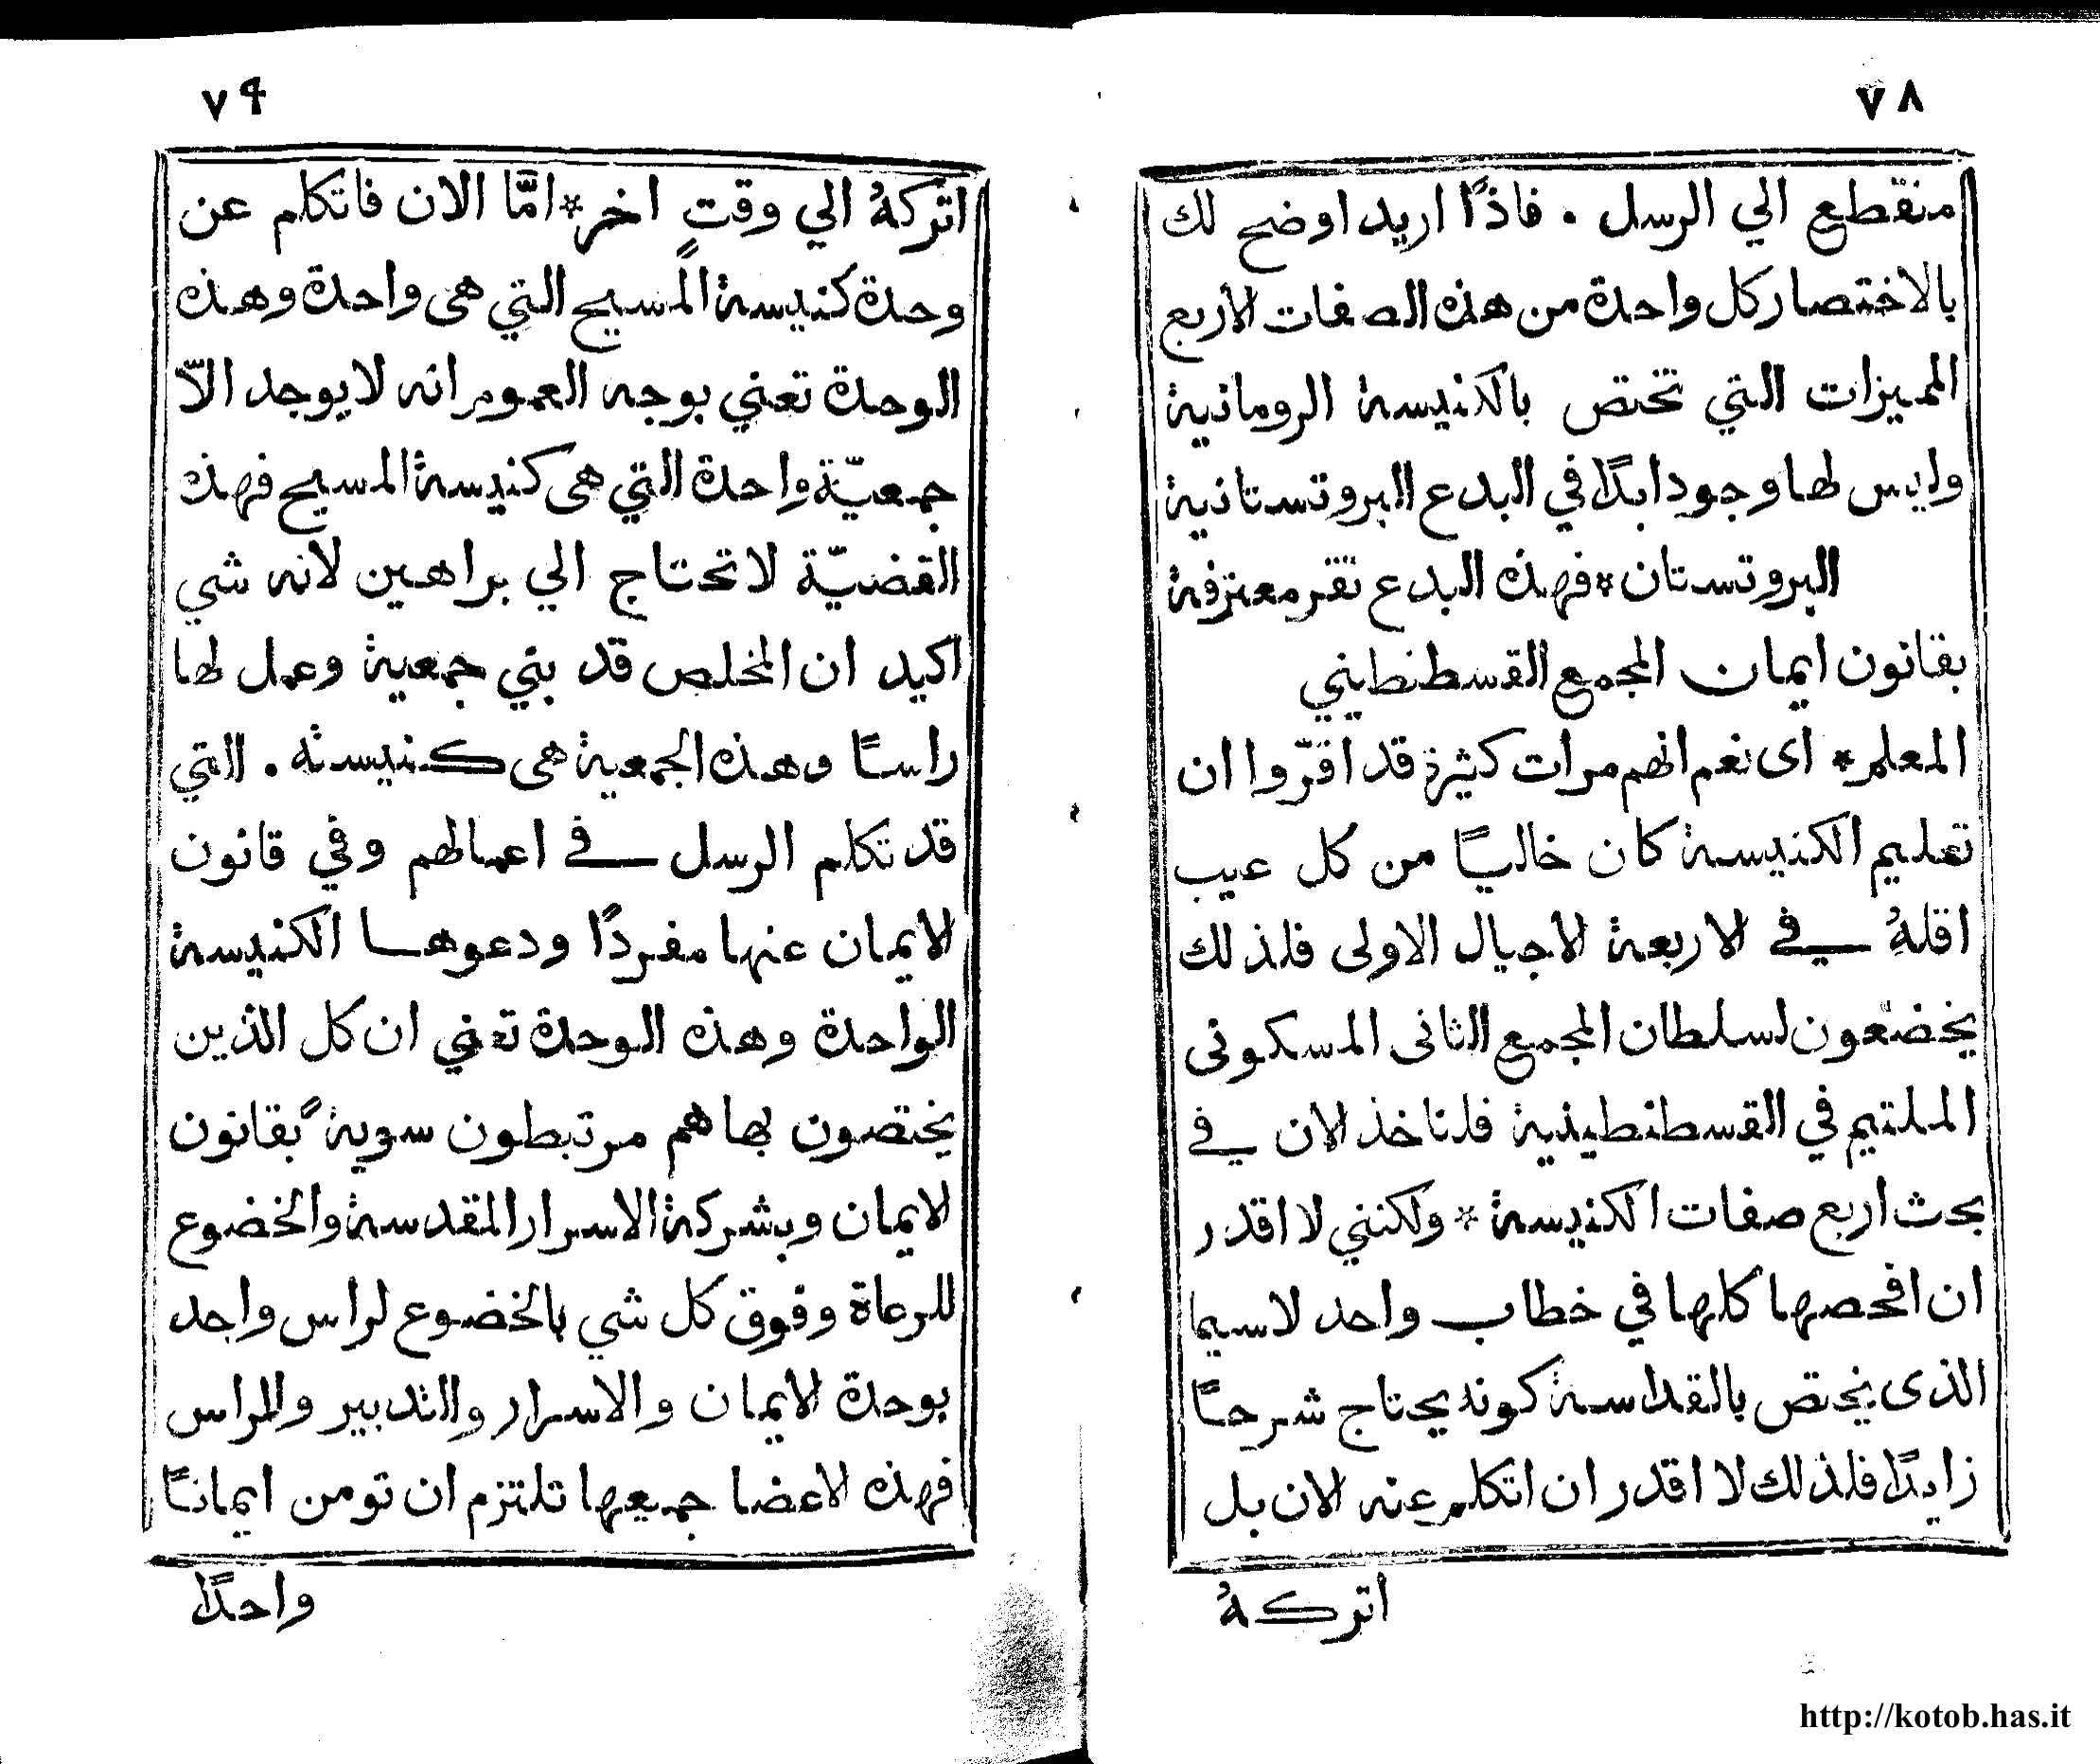 ٧٨
منقطع الي الرسل . فاذًا اريد اوضح لك
بالاختصار كل واحدة من هذه الصفات الاربع
المميزات التي تختص بالكنيسة الرومانية
وليس لها وجود ابدًا في البدع البروتستانية
البروتستان * فهذه البدع تقر معترفة
بقانون ايمان المجمع القسطنطيني
المعلم * اى نعم انهم مرات كثيرة قد اقرّوا ان
تعليم الكنيسة كان خاليًا من كل عيب
اقلهُ في الاربعة الاجيال الاولى فلذلك
يخضعون لسلطان المجمع الثانى المسكونى
الملتيم في القسطنطينية فلناخذ الان في
بحث اربع صفات الكنيسة * ولكنني لا اقدر
ان افحصها كلها في خطاب واحد لاسيما
الذى يختص بالقداسة كونه يحتاج شرحًا
زايدًا فلذلك لا اقدر ان اتكلم عنه الان بل
اتركهُ
٧٩
اتركهُ الي وقتٍ اخر * امَّا الان فاتكلم عن
وحدة كنيسة المسيح التي هى واحدة وهذه
الوحدة تعني بوجه العموم انه لا يوجد الاّ
جمعيّة واحدة التي هى كنيسة المسيح فهذه
القضيّة لا تحتاج الي براهين لانه شي
اكيد ان المخلص قد بني جمعية وعمل لها
راسًا وهذه الجمعية هى كنيسته . التي
قد تكلم الرسل في اعمالهم وفي قانون
الايمان عنها مفردًا ودعوها الكنيسة
الواحدة وهذه الوحدة تعني ان كل الذين
يختصون بها هم مرتبطون سويةً بقانون
الايمان وبشركة الاسرار المقدسة والخضوع
للرعاة وفوق كل شي بالخضوع لراس واحد
بوحدة الايمان والاسرار والتدبير والراس
فهذه الاعضا جميعها تلتزم ان تومن ايمانًا
واحدًا
http://kotob.has.it